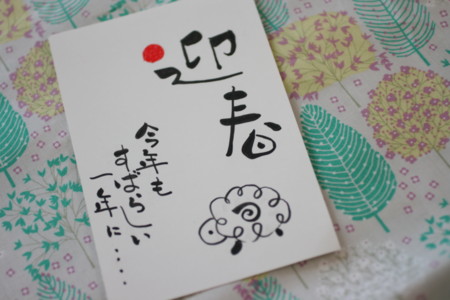 迎春
今年も
すばらしい
一年に・・・・